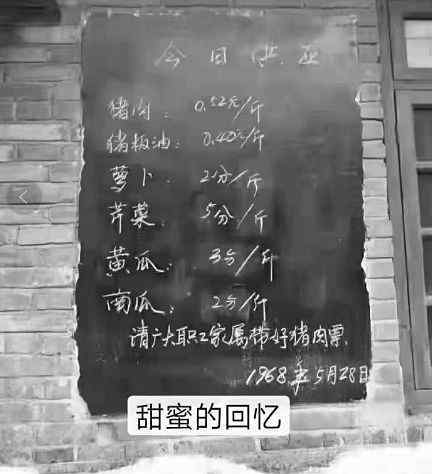 今日供应
猪肉：0.52元/斤
猪板油：0.40元/斤
萝卜：2分/斤
芹菜：5分/斤
黄瓜：3分/斤
南瓜：2分/斤
请广大职工家属带好猪肉票
1968年5月28日
甜蜜的回忆